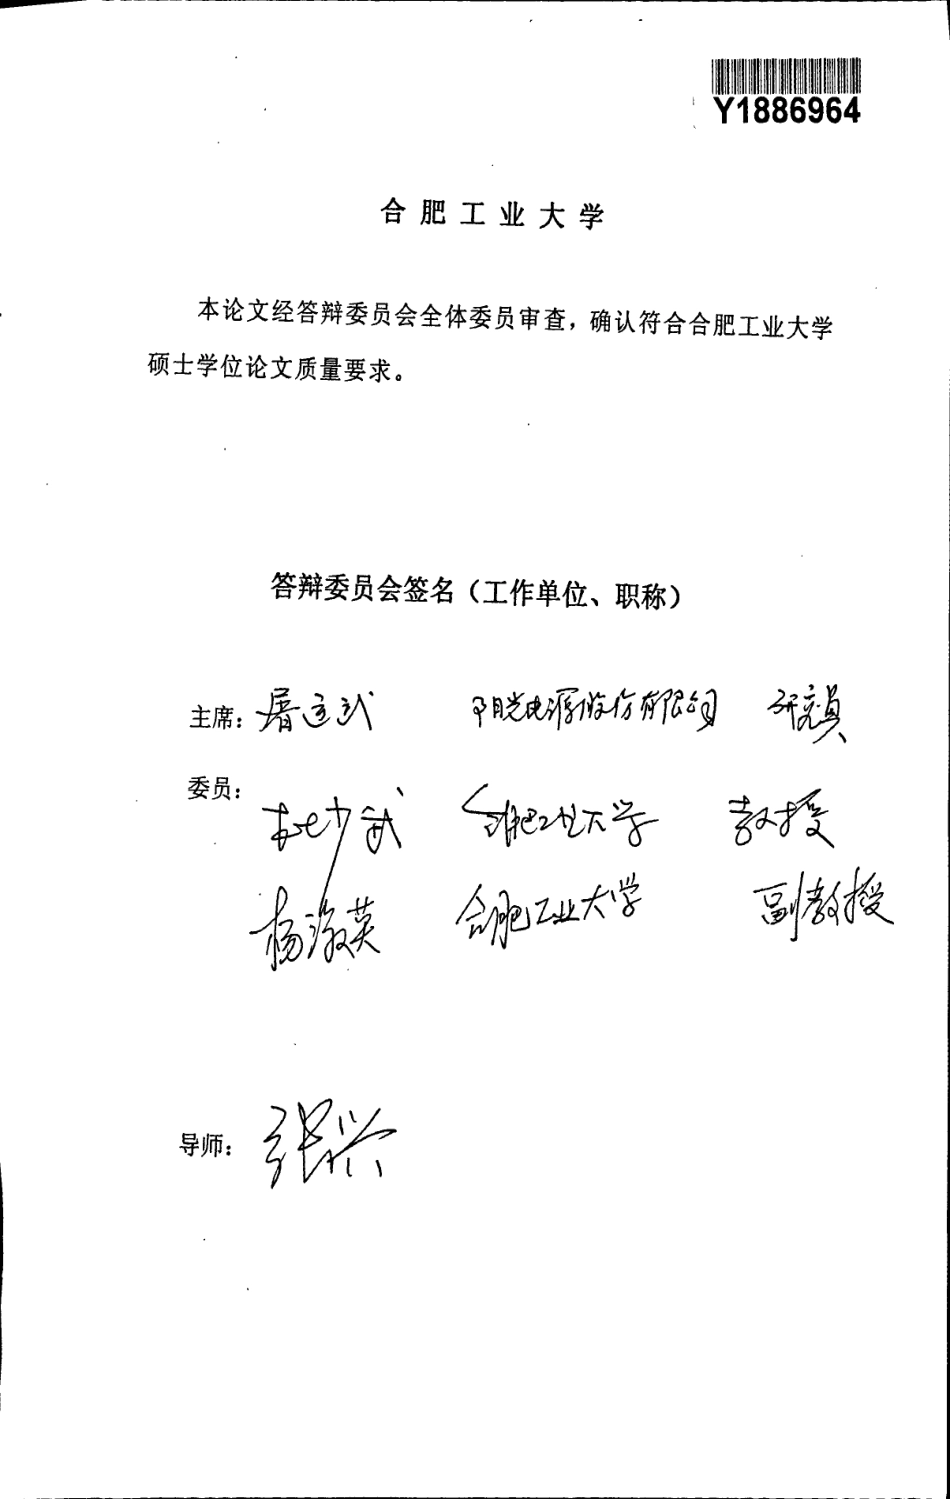 Y1886964
合肥工业大学
本论文经答辩委员会全体委员审查，确认符合合肥工业大学
硕士学位论文质量要求。
答辩委员会签名（工作单位、职称）
主席： 屠运武 阳光电源股份有限公司 研究员
委员：
杜少武 合肥工业大学 教授
杨淑英 合肥工业大学 副教授
导师： 张兴